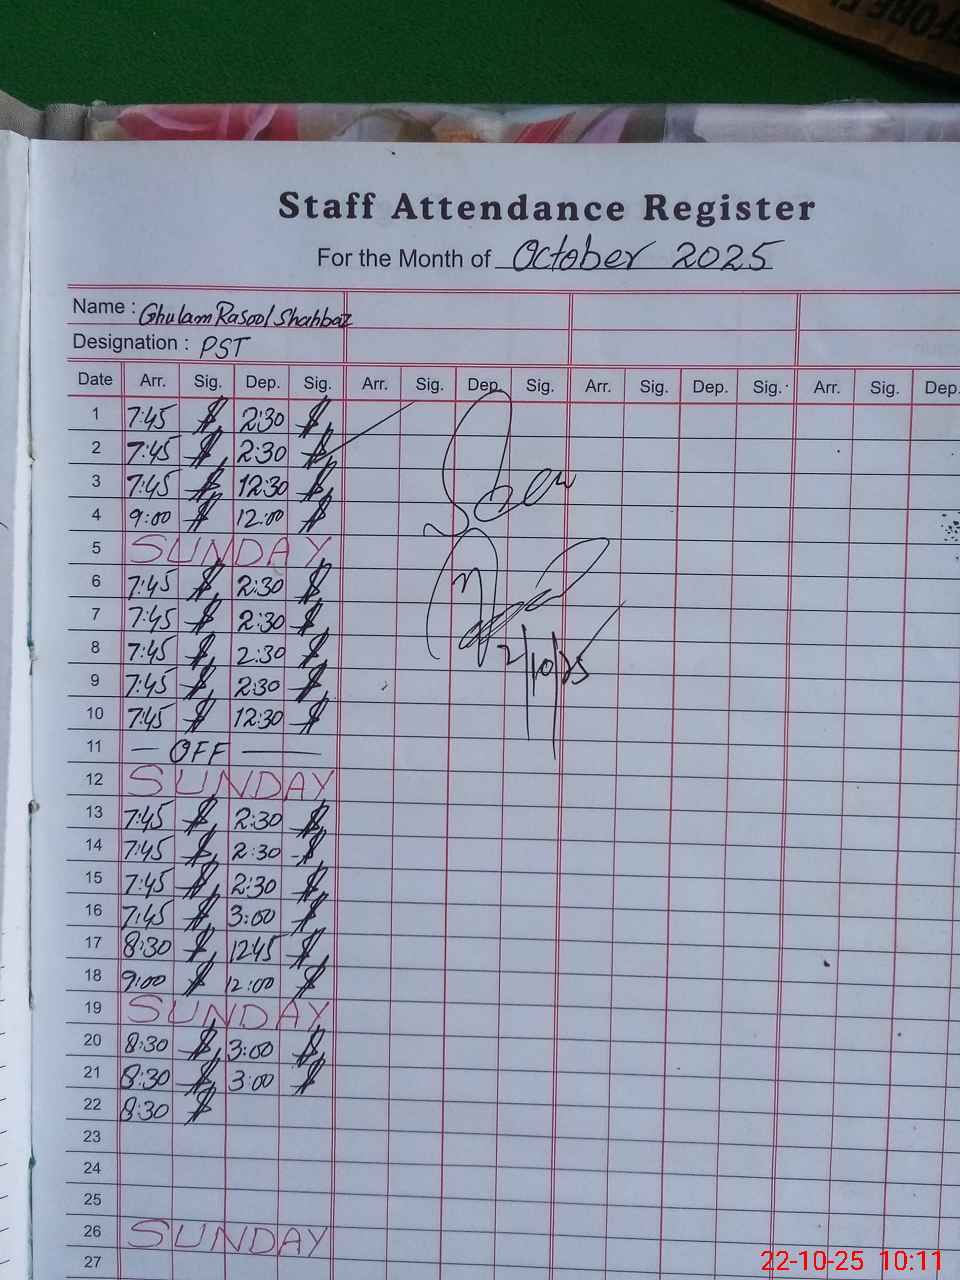 EFORE F
Staff Attendance Register
For the Month of October 2025
Name : Ghulam Rasool Shahbaz
Designation : PST
Date Arr. Sig. Dep. Sig. Arr. Sig. Dep. Sig. Arr. Sig. Dep. Sig. Arr. Sig. Dep.
1 7:45 2:30
2 7:45 2:30
3 7:45 12:30
4 9:00 12:00
5 SUNDAY
6 7:45 2:30
7 7:45 2:30
8 7:45 2:30
9 7:45 2:30
10 7:45 12:30
11 — OFF —
12 SUNDAY
13 7:45 2:30
14 7:45 2:30
15 7:45 2:30
16 7:45 3:00
17 8:30 1245
18 9:00 12:00
19 SUNDAY
20 8:30 3:00
21 8:30 3:00
22 8:30
23
24
25
26 SUNDAY
27
2/10/25
22-10-25 10:11